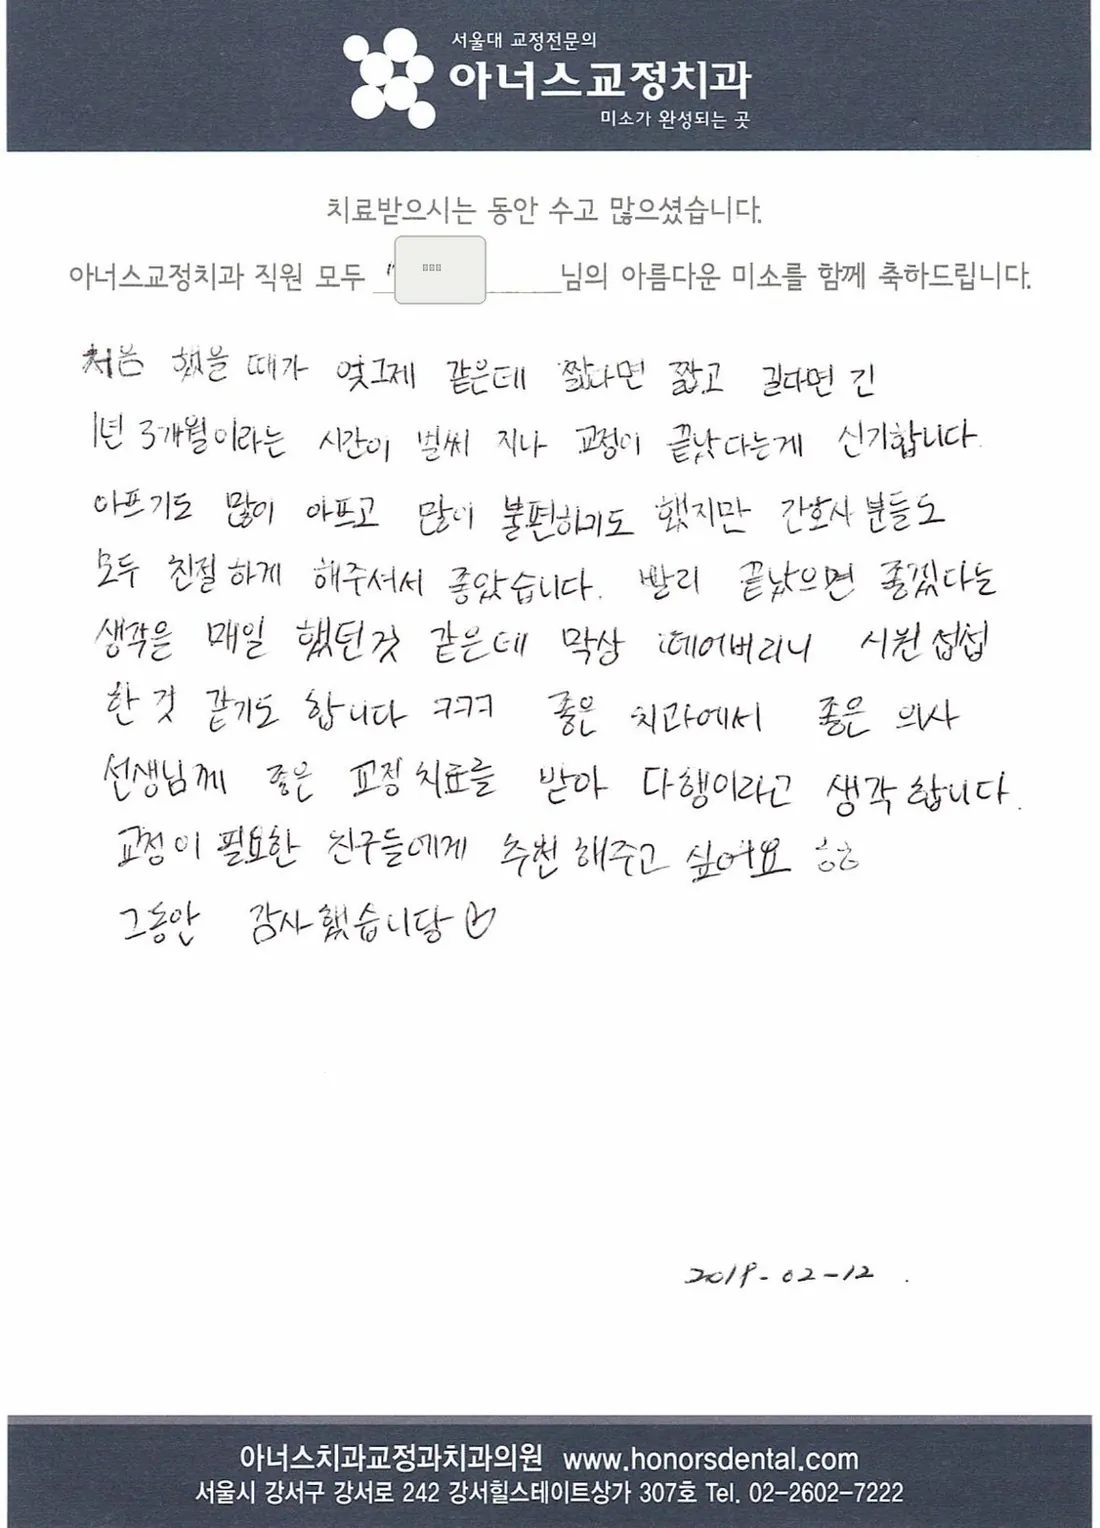 서울대 교정전문의
아너스교정치과
미소가 완성되는 곳
치료받으시는 동안 수고 많으셨습니다.
아너스교정치과 직원 모두 님의 아름다운 미소를 함께 축하드립니다.
처음 했을 때가 엊그제 같은데 짧다면 짧고 길다면 긴
1년 3개월이라는 시간이 벌써 지나 교정이 끝났다는게 신기합니다.
아프기도 많이 아프고 많이 불편하기도 했지만 간호사 분들도
모두 친절하게 해주셔서 좋았습니다. 빨리 끝났으면 좋겠다는
생각은 매일 했던것 같은데 막상 떼어버리니 시원섭섭
한 것 같기도 합니다 ㅋㅋㅋ 좋은 치과에서 좋은 의사
선생님께 좋은 교정 치료를 받아 다행이라고 생각 합니다.
교정이 필요한 친구들에게 추천 해주고 싶어요 ㅎㅎ
그동안 감사했습니당
아너스치과교정과치과의원 www.honorsdental.com
서울시 강서구 강서로 242 강서힐스테이트상가 307호 Tel. 02-2602-7222